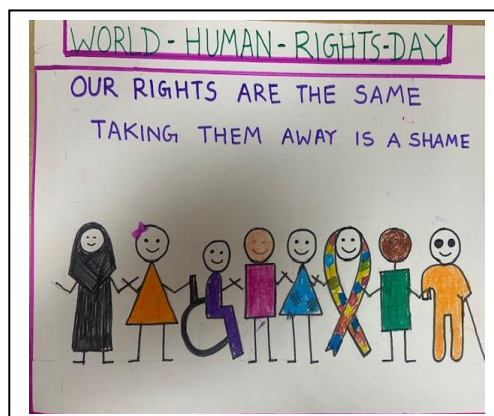 WORLD - HUMAN - RIGHTS-DAY
OUR RIGHTS ARE THE SAME
TAKING THEM AWAY IS A SHAME